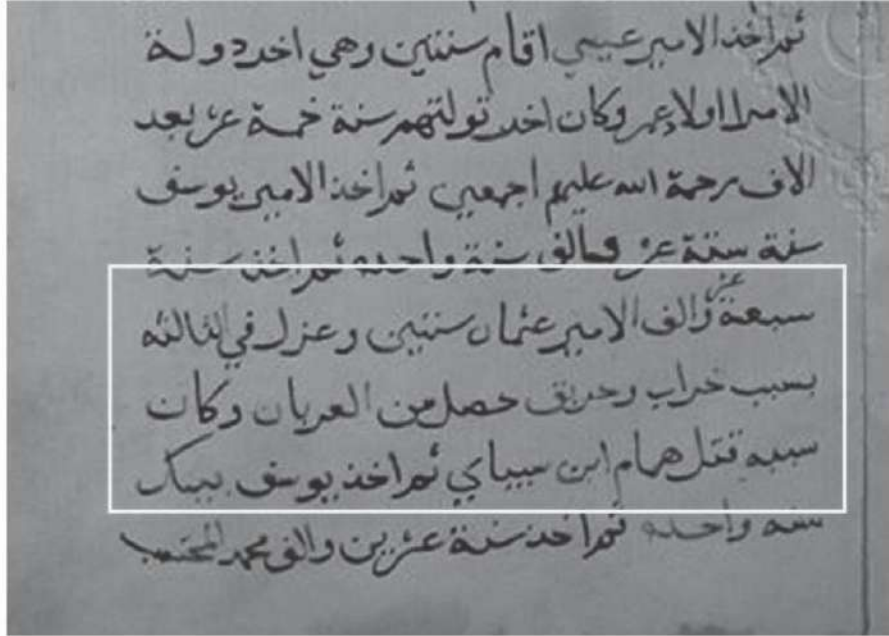 ثم اخذ الامير عيسي اقام سنتين وهي اخر دولة
الامرا اولاد عمر وكان اخر توليتهم سنة خمسة عشر بعد
الاف رحمة الله عليهم اجمعين ثم اخذ الامير يوسف
سنة ستة عشر والف سنة واحده ثم اخذ سنة
سبعة عشر والف الامير عثمان سنتين وعزل في الثالثه
بسبب خراب وحريق حصل من العربان وكان
سببه قتل همام ابن سيباي ثم اخذ يوسف بيك
سنه واحده ثم اخذ سنة عشرين والف محمد المحتسب